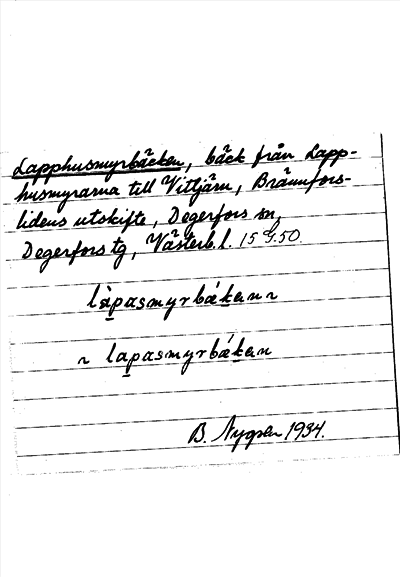 Lapphusmyrbäcken, bäck från Lapp-
husmyrarna till Vittjärn, Brännfors-
lidens utskifte, Degerfors sn,
Degerfors tg, Västerb. l. 15 G. 50.
làpasmyrbákan ~
~ lapasmyrbákan
B. Nygren 1934.